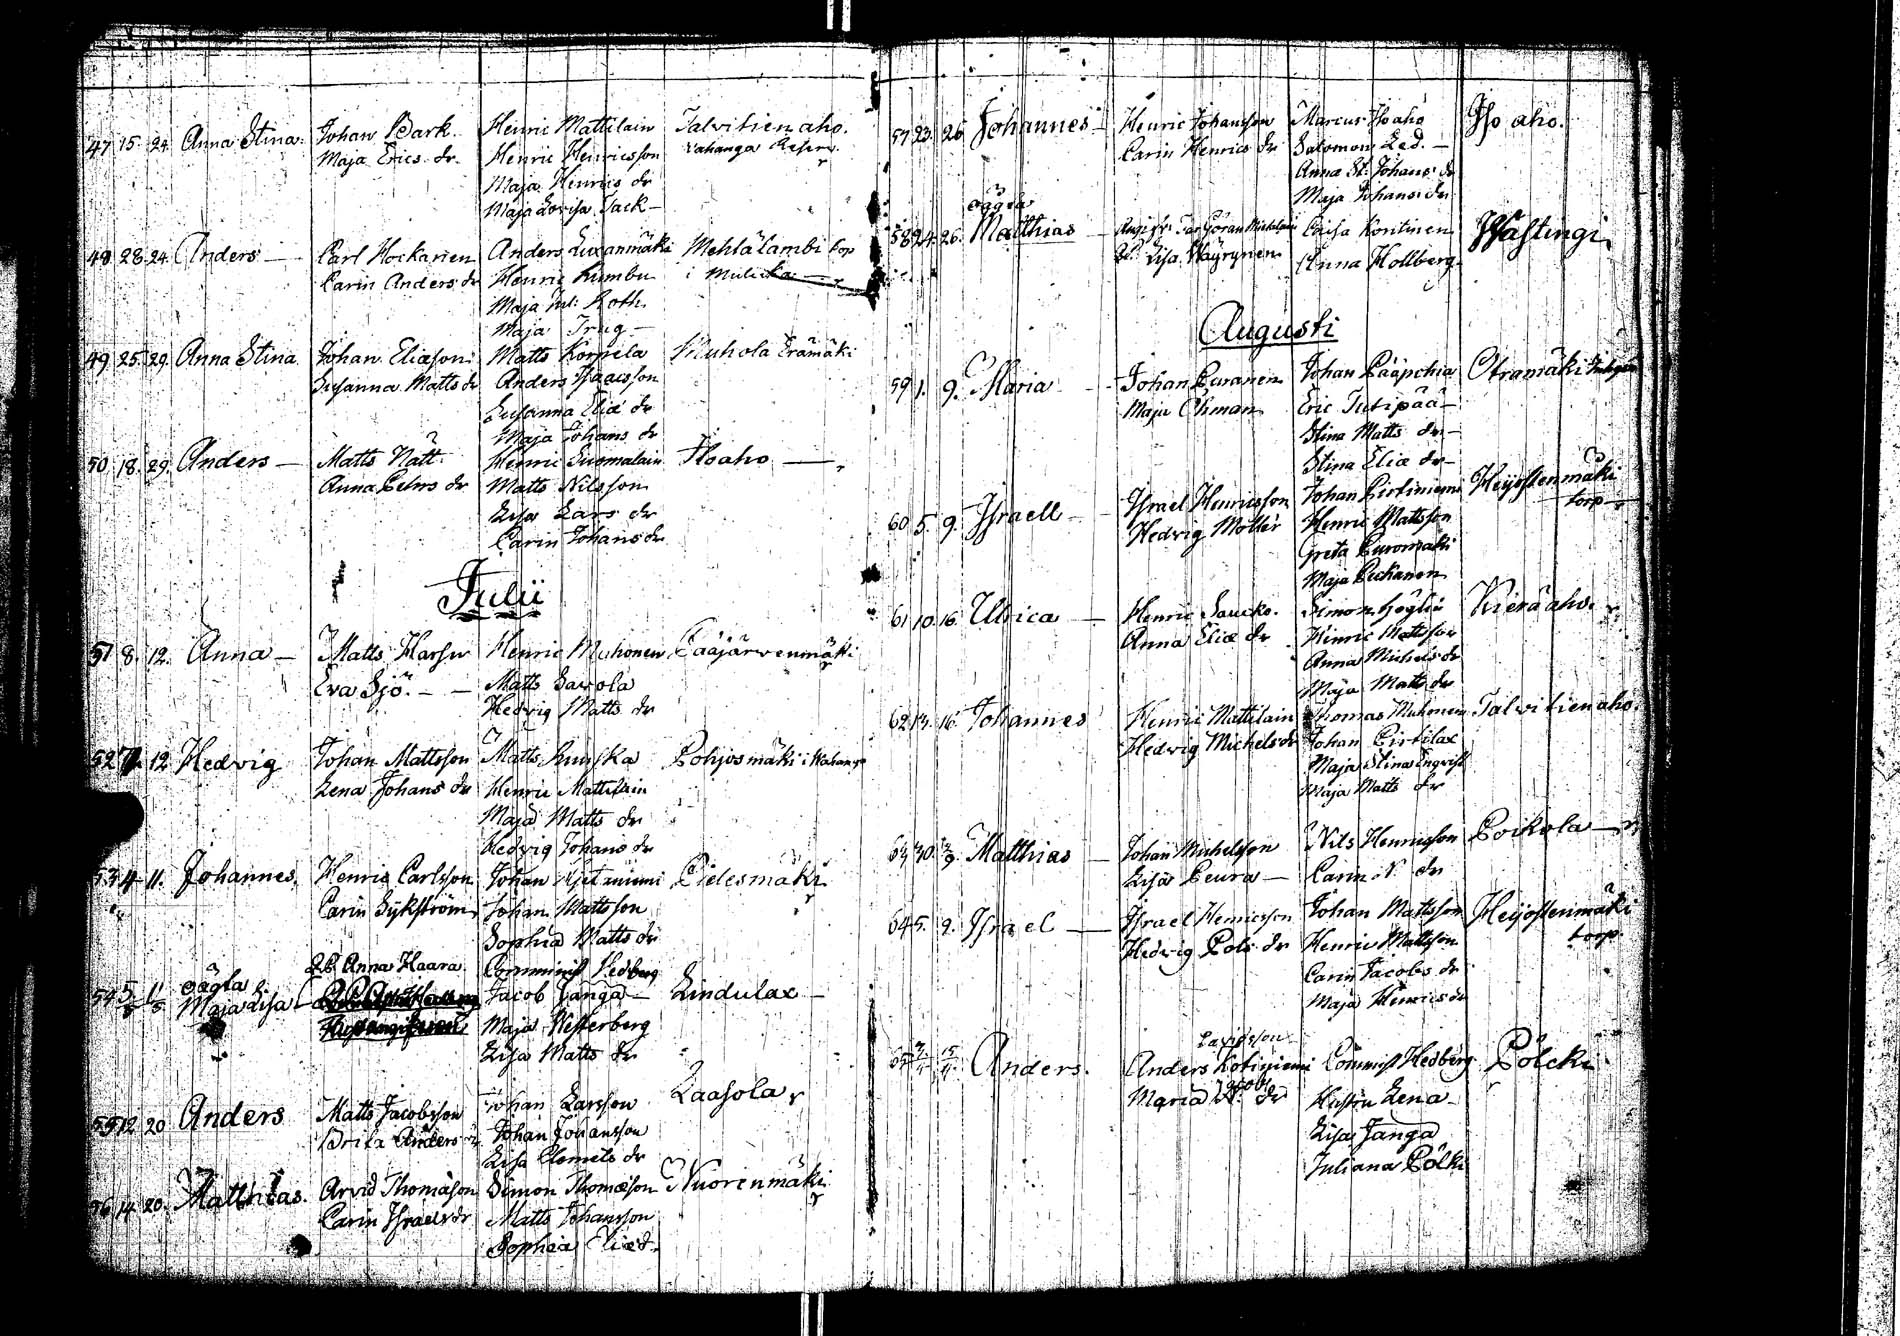 47 15. 24. Anna Stina. Johan Bark. Henric Mattilain Talvitienaho.
Maja Erics dr. Henric Henricsson
Maja Henrics dr
Maja Lovisa Tack
48 28. 24. Anders — Carl Hockanen Anders Luxanmäki Mehlälambi torp
Carin Anders dr Henric Kumbu i Mulicka
Maja Roth
Maja Trug —
49 25. 29. Anna Stina Johan Eliasson Matts Korpela Muhola Erämäki
Susanna Matts dr Anders Isaacsson
Susanna Eliæ dr
Maja Johans dr
50 18. 29. Anders — Matts Nätt Henric Suomalain Isoaho —
Anna Pehrs dr Matts Nilsson
Lisa Lars dr
Carin Johans dr
Julii
51 8. 12. Anna — Matts Harju Henric Muhonen Pääjärwenmäki
Eva Sjö. — Matts Savola
Hedvig Matts dr
52 12 Hedvig Johan Mattsson Matts Pohjosmäki i
Lena Johans dr Henric Mattilain
Maja Matts dr
Hedvig Johans dr
53 4 11. Johannes. Henric Carlsson Johan Hjetaniemi Pielesmäki
Carin Sykström Johan Mattsson
Sophia Matts dr
oägta Anna Haara Comminist Hedberg
54 Maja Lisa Jacob Janga — Lindulax —
Maja Westerberg
Lisa Matts dr
55 12 20 Anders Matts Jacobsson Johan Larsson Laasola
Brita Anders dr Johan Johansson
Lisa Clemets dr
56 14 20. Matthias. Arvid Thomasson Simon Thomasson Nuorenmäki
Carin Israels dr Matts Johansson
Sophia Eliæ d.
57 23. 26 Johannes — Henric Johansson Marcus Isoaho Iso aho.
Carin Henrics dr Salomon Led. —
Anna St. Johans dr
Maja Johans dr
oägta
58 24. 26. Matthias — Göran Michelsson Caisa Kontinen Wästingi
Lisa Wäyrynen Anna Hollberg
Augusti
59 1. 9. Maria — Johan Puranen Johan Pääpchia Otramäki
Maja Öhman Eric Tutipää —
Stina Matts dr —
Stina Eliæ dr —
60 5. 9. Israell — Israel Henricsson Johan Pistiniemi Heijostenmäki
Hedvig Möller Henric Mattsson torp
Greta Puromäki
Maja Peckanen
61 10. 16. Ulrica — Henric Saucko. Simon Höglin Kieräaho.
Anna Eliæ dr Hinric Mattsson
Anna Michels dr
Maja Matts dr
62 13. 16. Johannes Henric Mattilain Thomas Muhonen Talvitienaho.
Hedvig Michels dr Johan Pistilax
Maja Stina Engvist
Maja Matts dr
63 30. 2/9. Matthias — Johan Michelsson Nils Henricsson Poikola —
Lisa Peura — Carin N. dr
64 5. 9. Israel — Israel Henricsson Johan Mattsson Heijostenmäki
Hedvig Pots dr Henric Mattsson torp.
Carin Jacobs dr
Maja Henrics dr
65 Anders. Anders Kotiniemi Commist Hedberg Pölcki
Maria Jacobs dr Hustru Lena
Lisa Janga
Juliana Pölki